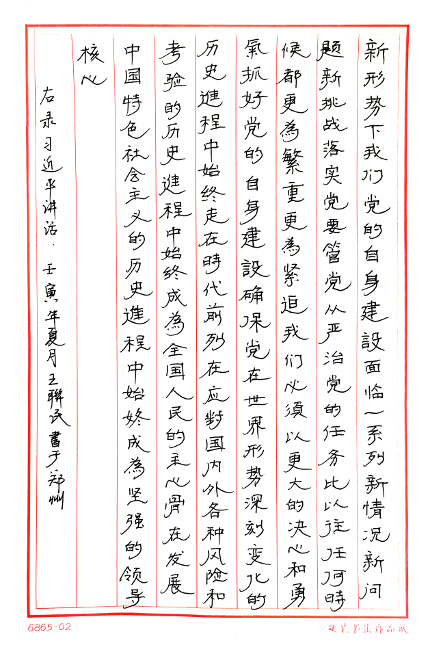 新形势下我们党的自身建設面临一系列新情况新问
题新挑战落实党要管党从严治党的任务比以往任何時
候都更為繁重更為紧迫我们必須以更大的决心和勇
氣抓好党的自身建設确保党在世界形势深刻变化的
历史進程中始终走在時代前列在应對国内外各种风险和
考验的历史進程中始终成為全国人民的主心骨在发展
中国特色社会主义的历史進程中始终成為坚强的领导
核心
右录习近平讲话．壬寅年夏月王聯民書于郑州
6865-02
硬笔书法作品纸